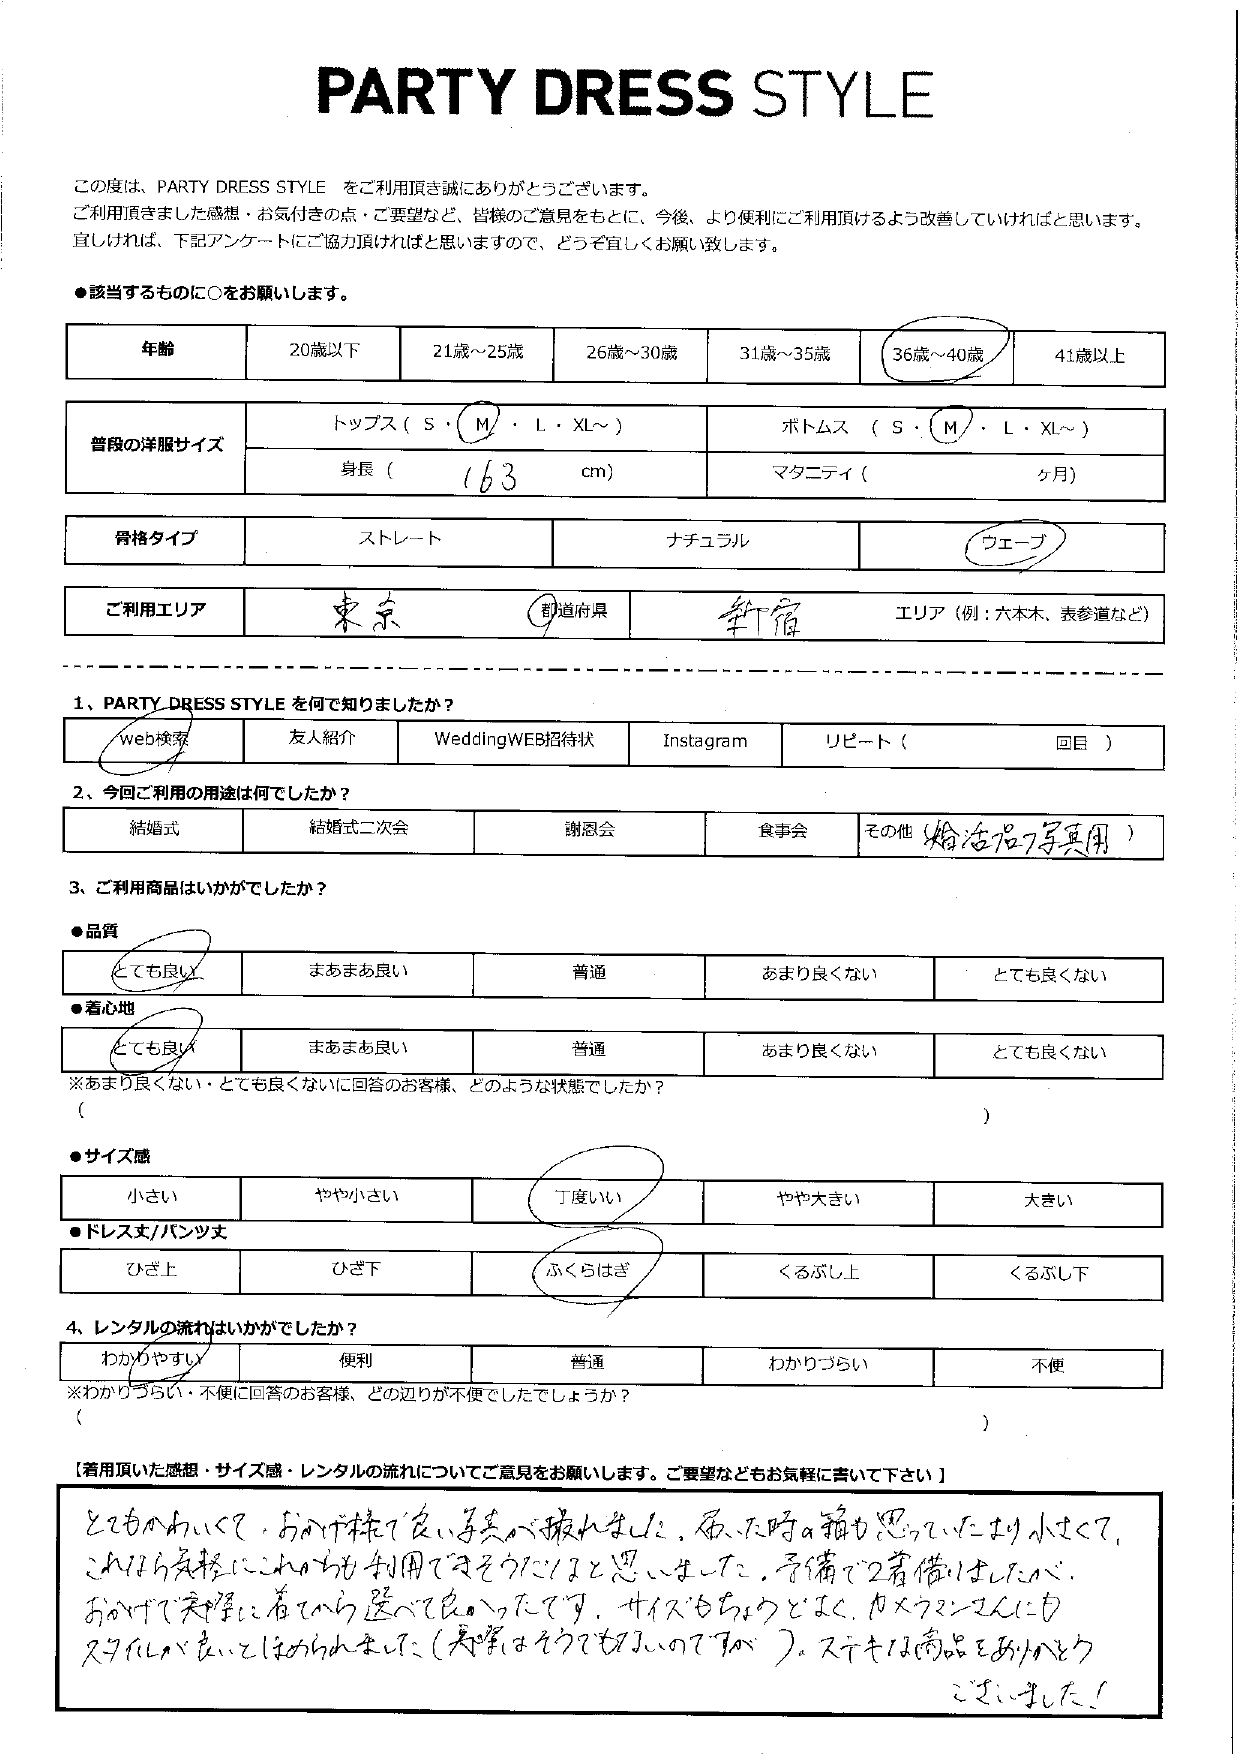 PARTY DRESS STYLE
この度は、PARTY DRESS STYLE をご利用頂き誠にありがとうございます。
ご利用頂きました感想・お気付きの点・ご要望など、皆様のご意見をもとに、今後、より便利にご利用頂けるよう改善していければと思います。
宜しければ、下記アンケートにご協力頂ければと思いますので、どうぞ宜しくお願い致します。
●該当するものに○をお願いします。
年齢 20歳以下 21歳～25歳 26歳～30歳 31歳～35歳 36歳～40歳 41歳以上
普段の洋服サイズ トップス ( S ・ M ・ L ・ XL～ ) ボトムス ( S ・ M ・ L ・ XL～ )
身長 ( 163 cm) マタニティ ( ヶ月)
骨格タイプ ストレート ナチュラル ウェーブ
ご利用エリア 東京 都道府県 新宿 エリア（例：六本木、表参道など）
1、PARTY DRESS STYLE を何で知りましたか？
web検索 友人紹介 WeddingWEB招待状 Instagram リピート ( 回目 )
2、今回ご利用の用途は何でしたか？
結婚式 結婚式二次会 謝恩会 食事会 その他 (婚活プロフ写真用 )
3、ご利用商品はいかがでしたか？
●品質
とても良い まあまあ良い 普通 あまり良くない とても良くない
●着心地
とても良い まあまあ良い 普通 あまり良くない とても良くない
※あまり良くない・とても良くないに回答のお客様、どのような状態でしたか？
( )
●サイズ感
小さい やや小さい 丁度いい やや大きい 大きい
●ドレス丈/パンツ丈
ひざ上 ひざ下 ふくらはぎ くるぶし上 くるぶし下
4、レンタルの流れはいかがでしたか？
わかりやすい 便利 普通 わかりづらい 不便
※わかりづらい・不便に回答のお客様、どの辺りが不便でしたでしょうか？
( )
【着用頂いた感想・サイズ感・レンタルの流れについてご意見をお願いします。ご要望などもお気軽に書いて下さい 】
とてもかわいくて、おかげ様で良い写真が撮れました。届いた時の箱も思っていたより小さくて、
これなら気軽にこれからも利用できそうだなと思いました。予備で2着借りましたが、
おかげで実際に着てから選べて良かったです。サイズもちょうどよく、カメラマンさんにも
スタイルが良いとほめられました(実際はそうでもないのですが )。ステキな商品をありがとう
ございました！